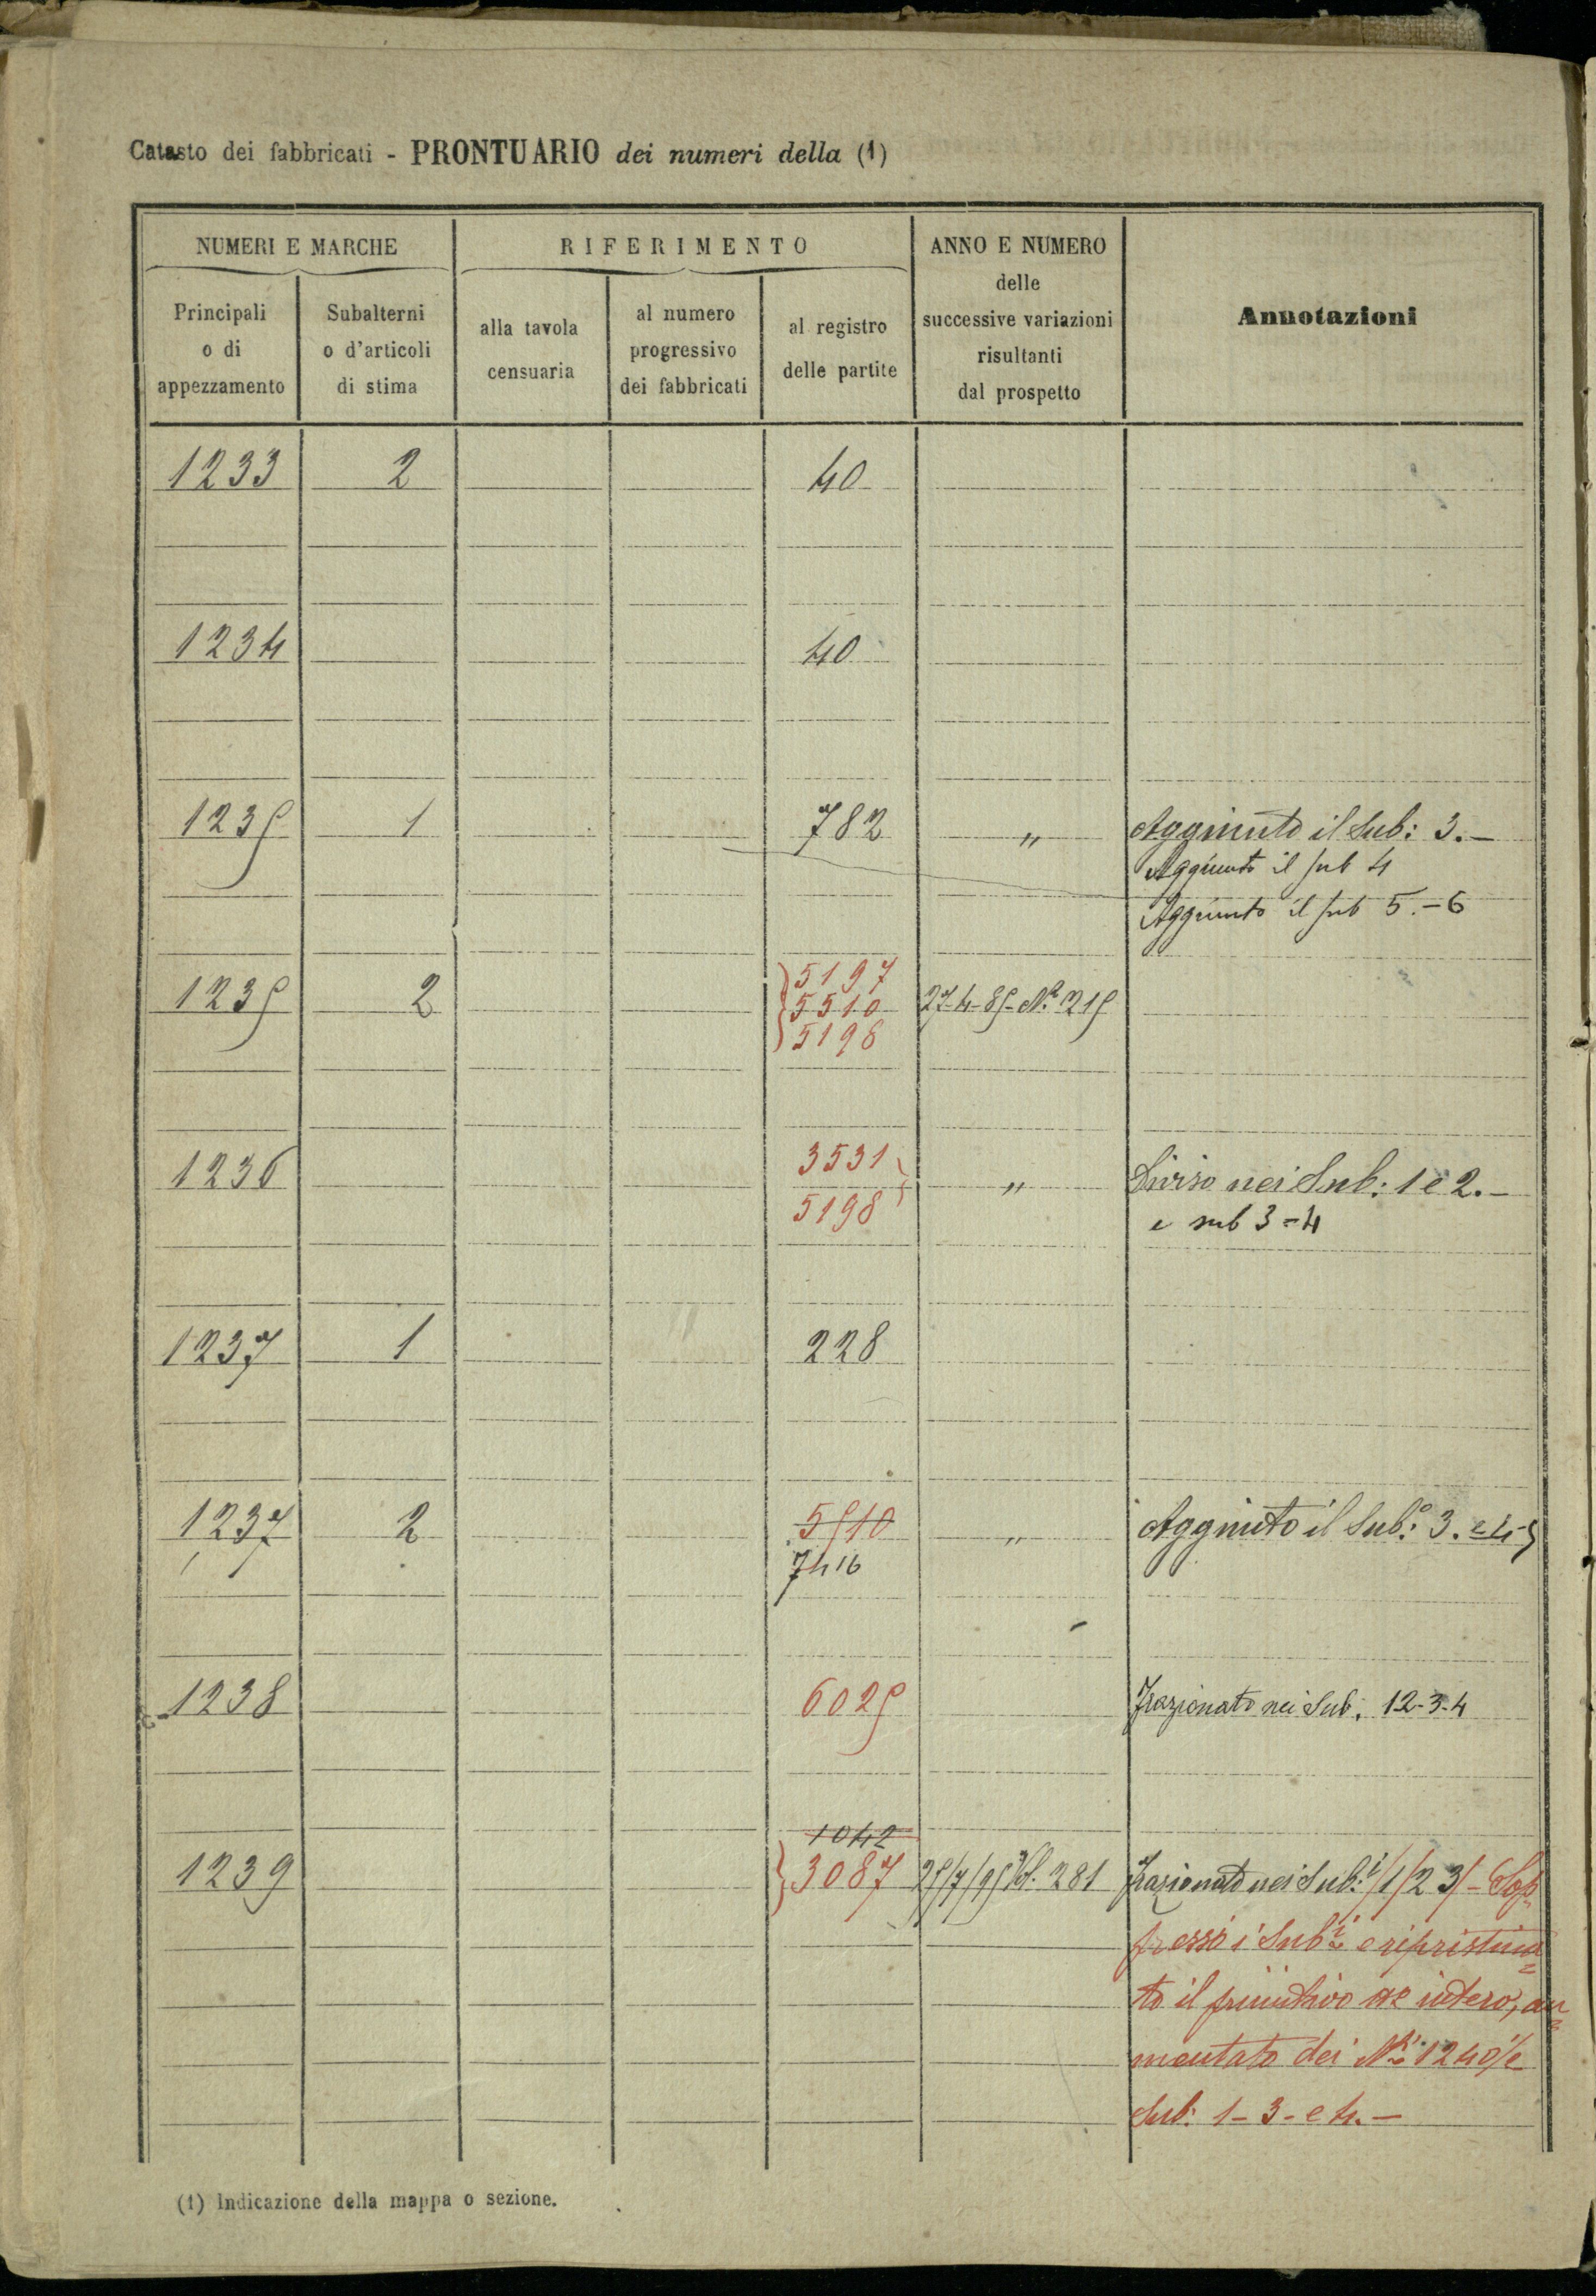 Catasto dei fabbricati - PRONTUARIO dei numeri della (1)
NUMERI E MARCHE
RIFERIMENTO
ANNO E NUMERO
delle
successive variazioni
risultanti
dal prospetto
Annotazioni
Principali
o di
appezzamento
Subalterni
o d'articoli
di stima
alla tavola
censuaria
al numero
progressivo
dei fabbricati
al registro
delle partite
1233 2 40
1234 40
1235 1 782 " Aggiunto il Sub: 3.-
Aggiunto il sub 4
Aggiunto il sub 5.-6
5197
1235 2 5510 27-4-85-N.o 215
5198
3531
1236 " Diviso nei Sub: 1 e 2.-
5198 e sub 3=4
1237 1 228
1237 2 5510 " Aggiunto il Sub.o 3. e 4-5
7416
1238 6025 Frazionato nei Sub. 1-2-3-4
1042
1239 3087 25/7/95 Vol. 281 Frazionato nei Sub.i /1/2 3/- Sop
pressi i Sub.i e ripristina
to il primitivo intero, au
mentato dei N.i 1240/e
Sub: 1-3-e 4.-
(1) Indicazione della mappa o sezione.